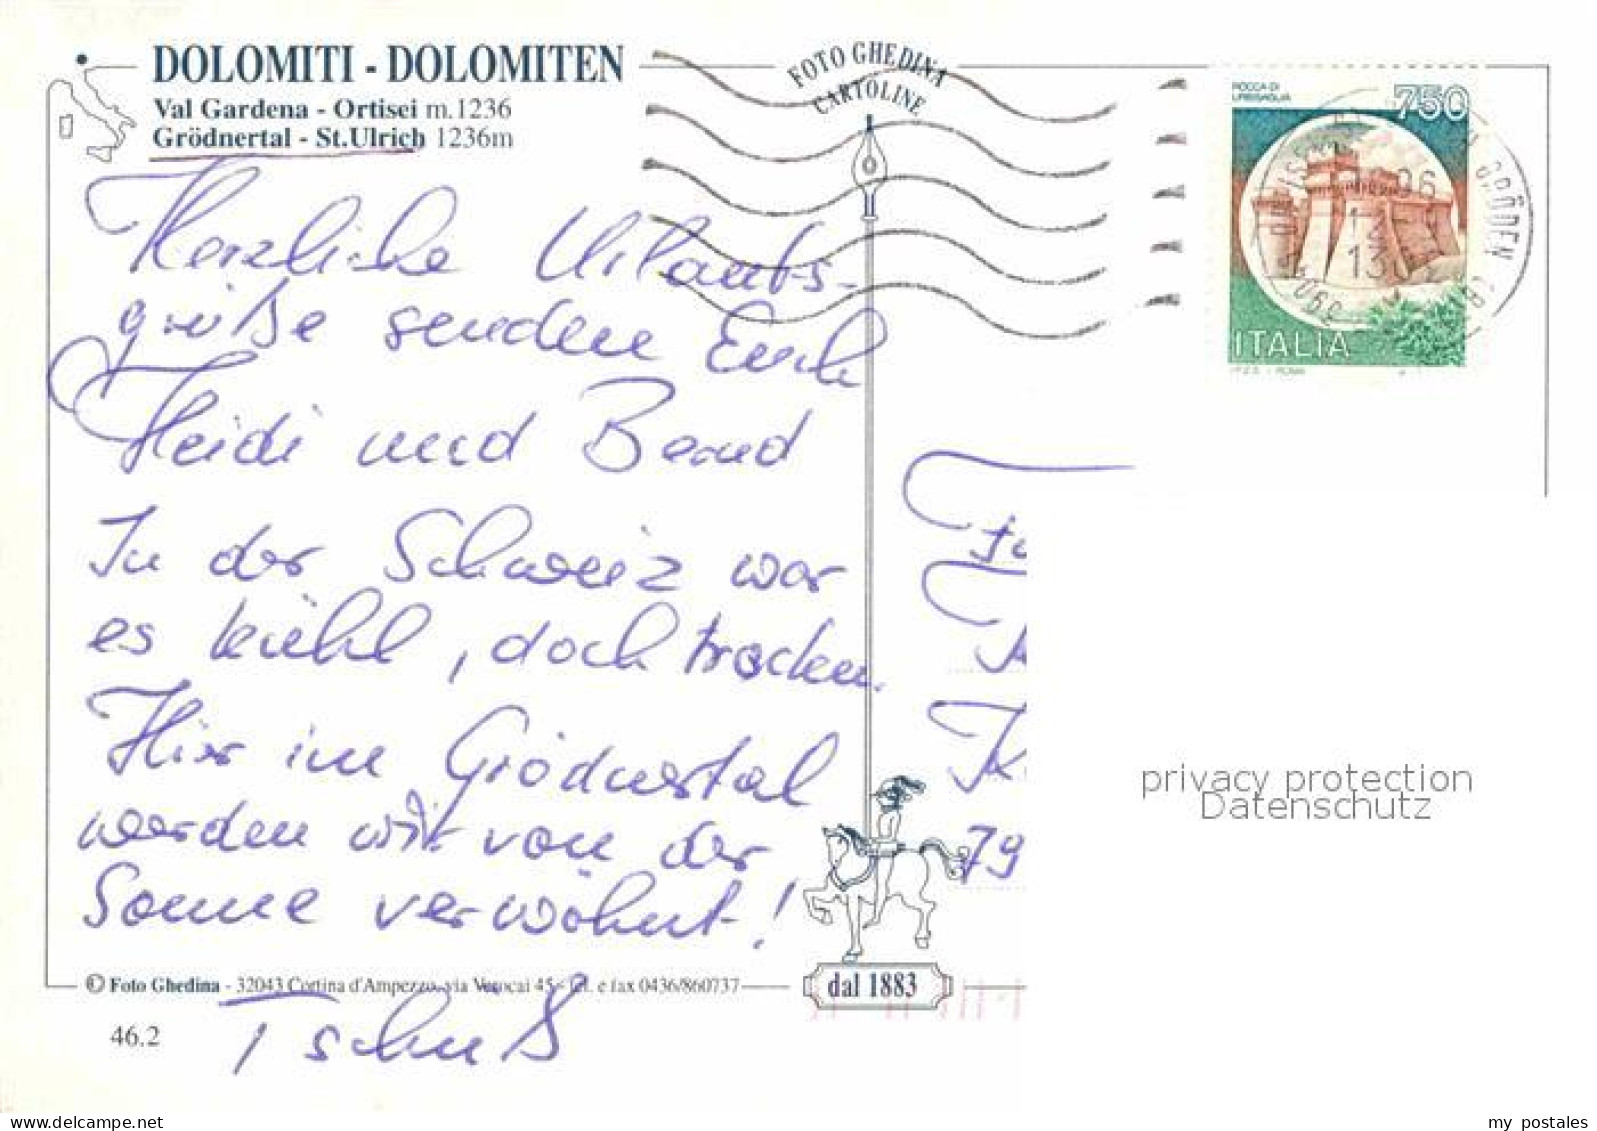 DOLOMITI - DOLOMITEN
Val Gardena - Ortisei m.1236
Grödnertal - St.Ulrich 1236m
FOTO GHEDINA
CARTOLINE
ROCCA DI
URBISAGLIA
750
ITALIA
I.P.Z.S. - ROMA
Herzliche Urlaubs-
grüße senden Euch
Heidi und Bernd
In der Schweiz war
es kühl, doch trocken.
Hier im Grödnertal
werden wir von der
Sonne verwöhnt!
Tschüß
79
privacy protection
Datenschutz
© Foto Ghedina - 32043 Cortina d'Ampezzo, via Verocai 45 - tel. e fax 0436/860737
dal 1883
46.2
my postales